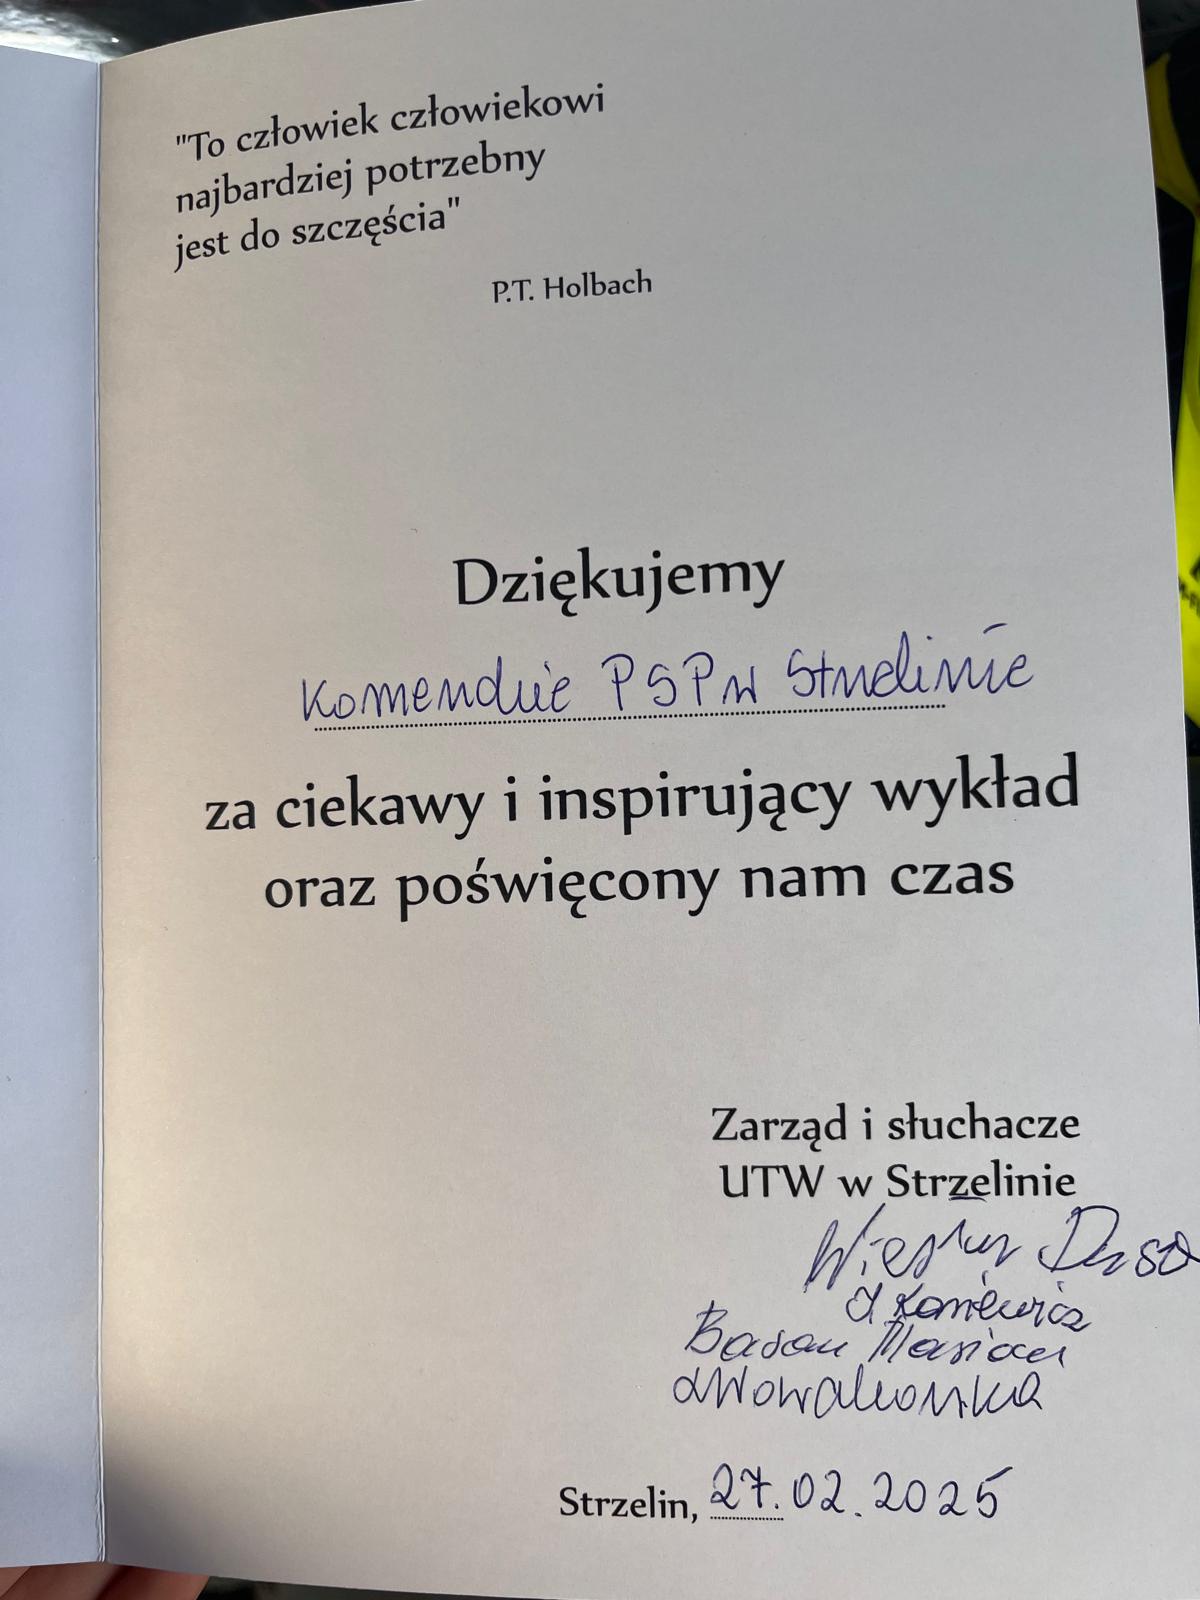 "To człowiek człowiekowi
najbardziej potrzebny
jest do szczęścia"
P.T. Holbach
Dziękujemy
Komendzie PSP w Strzelinie
za ciekawy i inspirujący wykład
oraz poświęcony nam czas
Zarząd i słuchacze
UTW w Strzelinie
Strzelin, 27.02.2025